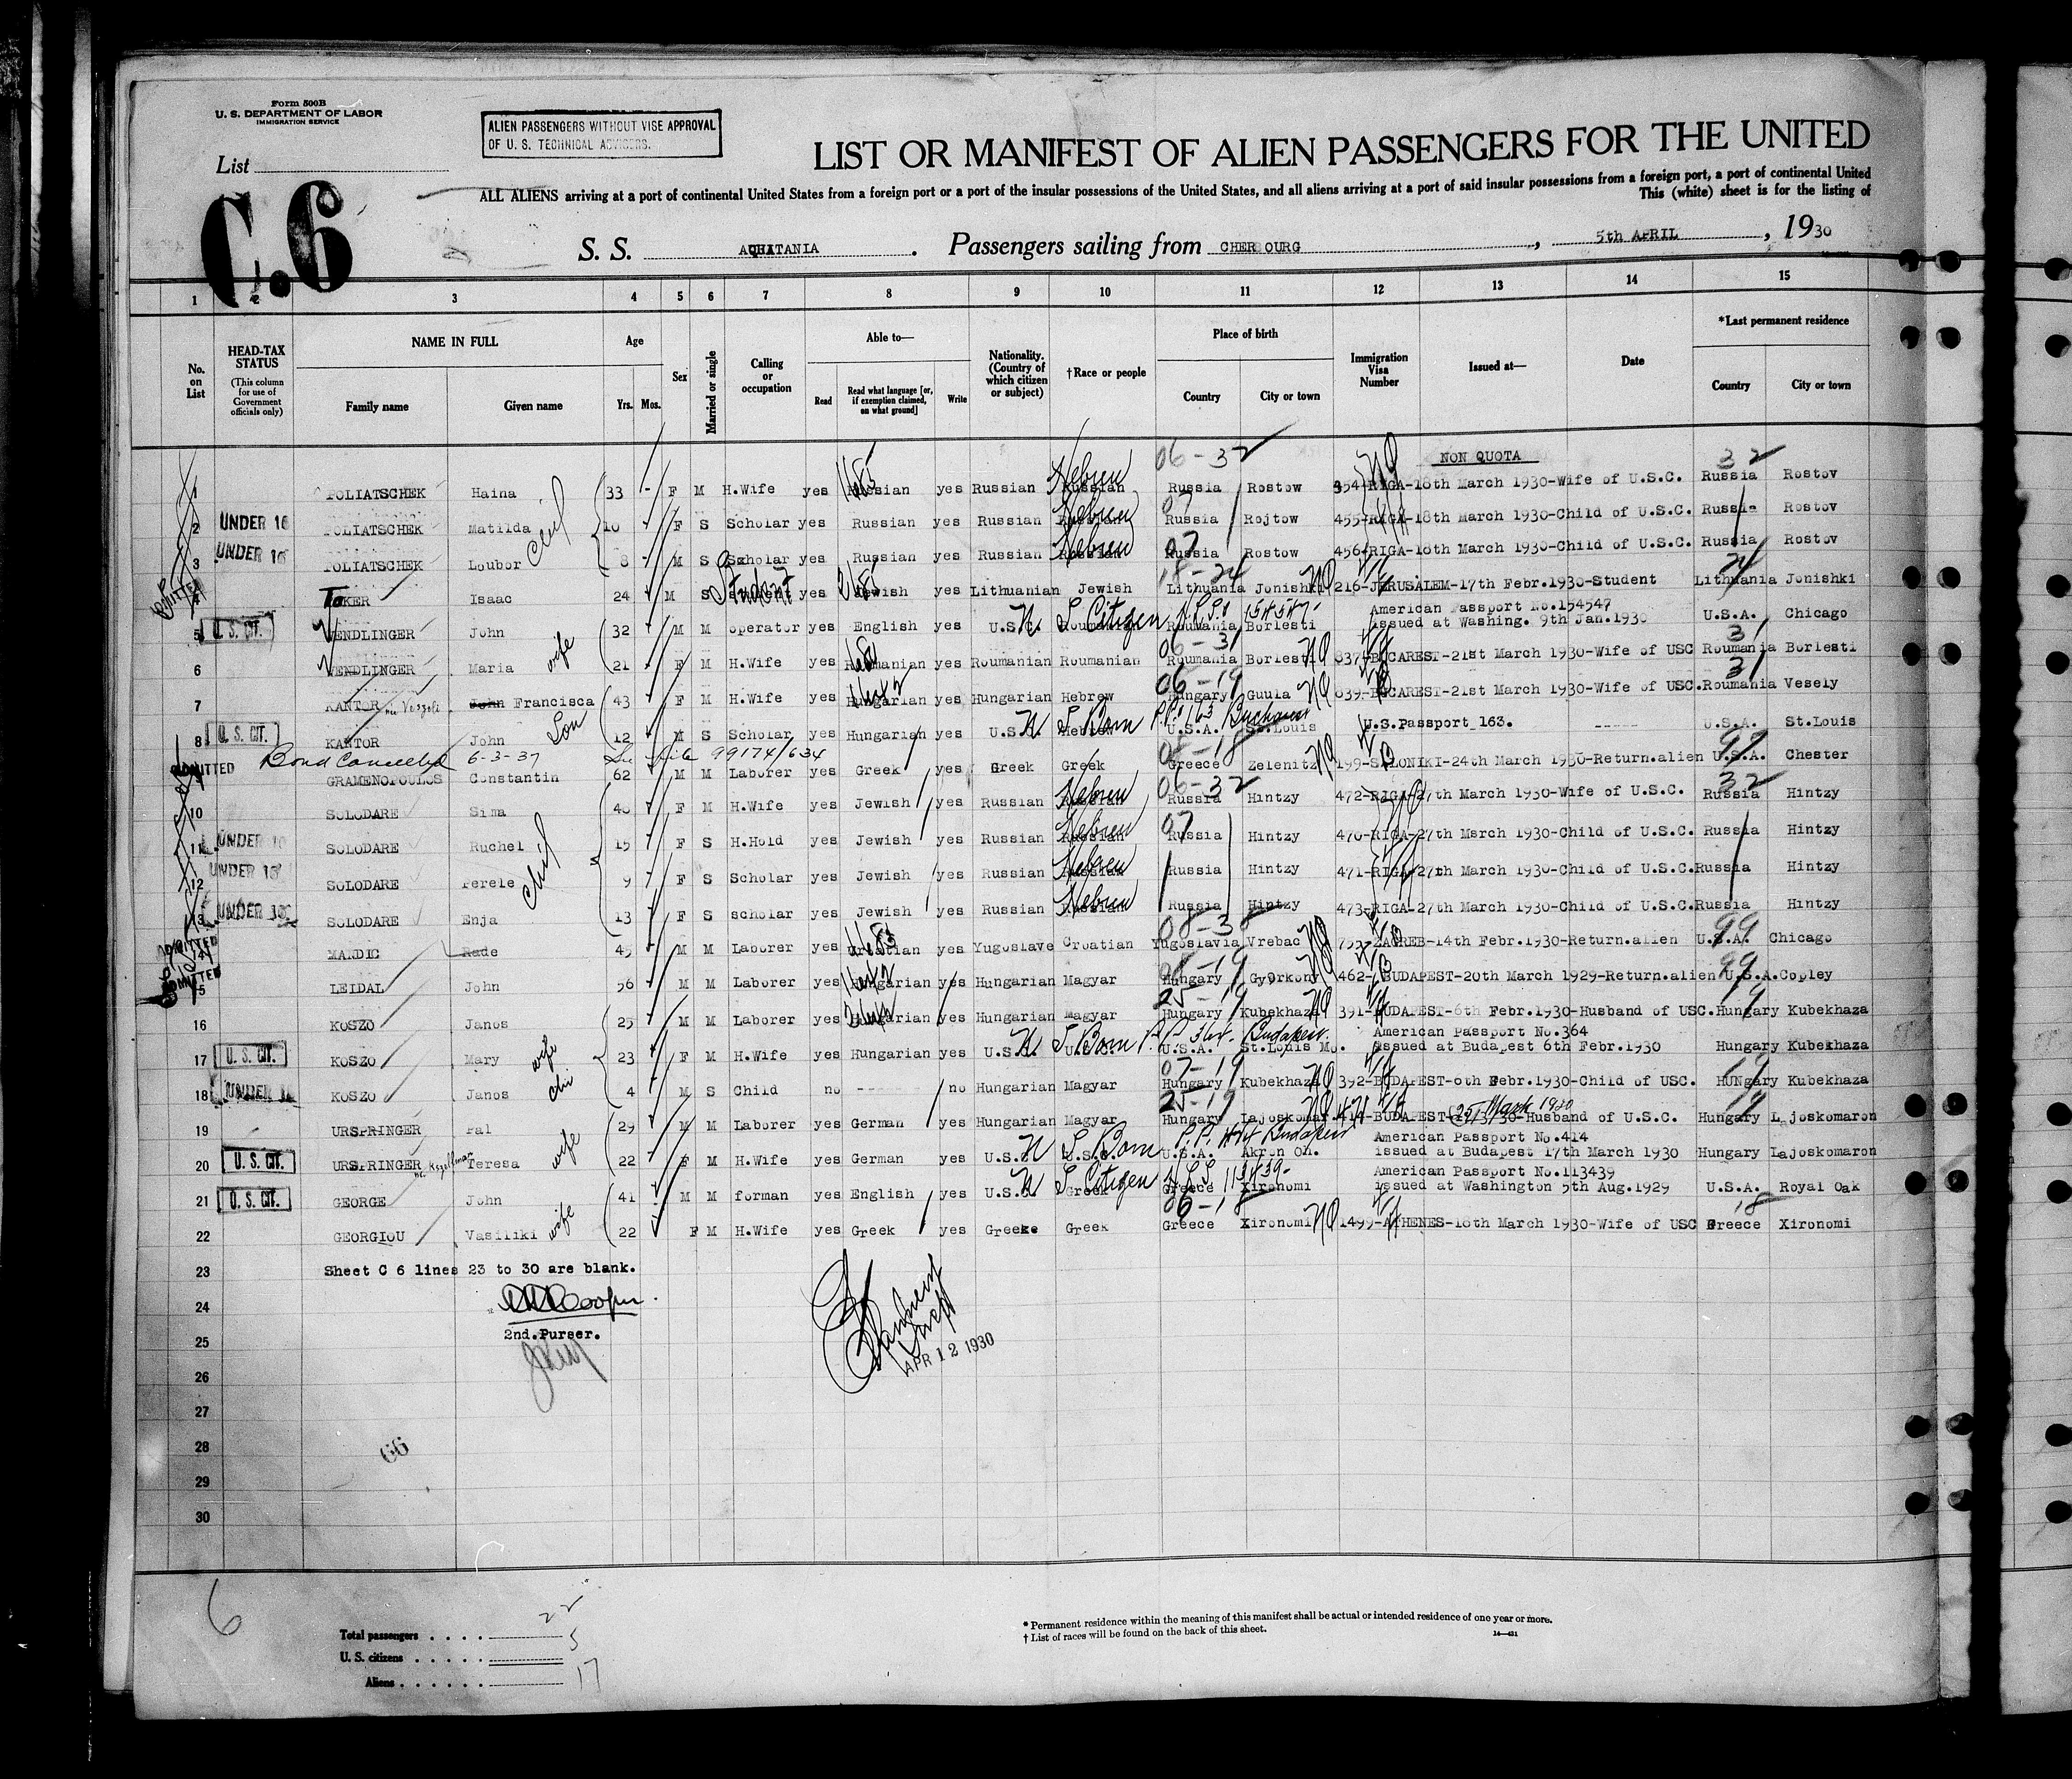 Form 500B
U. S. DEPARTMENT OF LABOR
IMMIGRATION SERVICE
ALIEN PASSENGERS WITHOUT VISE APPROVAL
OF U. S. TECHNICAL ADVISERS.
List
C.6
LIST OR MANIFEST OF ALIEN PASSENGERS FOR THE UNITED
ALL ALIENS arriving at a port of continental United States from a foreign port or a port of the insular possessions of the United States, and all aliens arriving at a port of said insular possessions from a foreign port, a port of continental United
This (white) sheet is for the listing of
S. S. AQUITANIA. Passengers sailing from CHERBOURG, 5th APRIL, 1930
1 2 3 4 5 6 7 8 9 10 11 12 13 14 15
No. on List
HEAD-TAX STATUS (This column for use of Government officials only)
NAME IN FULL Family name Given name
Age Yrs. Mos.
Sex
Married or single
Calling or occupation
Able to— Read Read what language [or, if exemption claimed, on what ground] Write
Nationality. (Country of which citizen or subject)
†Race or people
Place of birth Country City or town
Immigration Visa Number
Issued at—
Date
*Last permanent residence Country City or town
06-32 NON QUOTA 32
1 POLIATSCHEK Haina 33 - F M H.Wife yes Russian yes Russian Hebrew Russia Rostow 354-RIGA-18th March 1930-Wife of U.S.C. Russia Rostov
2 UNDER 16 POLIATSCHEK Matilda 10 F S Scholar yes Russian yes Russian Hebrew 07 Russia Rojtow 455-RIGA-18th March 1930-Child of U.S.C. Russia Rostov
3 UNDER 16 POLIATSCHEK Loubor 8 M S Scholar yes Russian yes Russian Hebrew 07 Russia Rostow 456-RIGA-18th March 1930-Child of U.S.C. Russia Rostov
18-24 24
4 Isaac 24 M S Student yes Jewish yes Lithuanian Jewish Lithuania Jonishki 216-JERUSALEM-17th Febr.1930-Student Lithuania Jonishki
American Passport No.154547
5 U. S. CIT. WENDLINGER John 32 M M operator yes English yes U.S.C. U S Citizen 154547 Roumania Borlesti issued at Washing. 9th Jan.1930 U.S.A. Chicago
06-31 31
6 WENDLINGER Maria wife 21 F M H.Wife yes Roumanian yes Roumanian Roumanian Roumania Borlesti NQ 837-BUCAREST-21st March 1930-Wife of USC Roumania Borlesti
06-19 31
7 KANTOR John Francisca 43 F M H.Wife yes Hungarian yes Hungarian Hebrew Hungary Guula NQ 839-BUCAREST-21st March 1930-Wife of USC.Roumania Vesely
8 U. S. CIT. KANTOR John Son 12 M S Scholar yes Hungarian yes U.S. U S Born P.P. 163 Bucharest Hebrew U.S.A. St.Louis U.S.Passport 163. ----- U.S.A. St.Louis
Bond Cancelled 6-3-37 See file 99174/634 08-18 99
ADMITTED GRAMENOPOULOS Constantin 62 M M Laborer yes Greek yes Greek Greek Greece Zelenitz 199-SALONIKI-24th March 1930-Return.alien U.S.A. Chester
06-32 32
10 SOLODARE Sima 40 F M H.Wife yes Jewish yes Russian Hebrew Russia Hintzy 472-RIGA-27th March 1930-Wife of U.S.C. Russia Hintzy
11 UNDER 16 SOLODARE Ruchel 15 F S H.Hold yes Jewish yes Russian Hebrew 07 Russia Hintzy 470-RIGA-27th March 1930-Child of U.S.C. Russia Hintzy
12 UNDER 16 SOLODARE Perele 9 F S Scholar yes Jewish yes Russian Hebrew Russia Hintzy 471-RIGA-27th March 1930-Child of U.S.C.Russia Hintzy
13 UNDER 16 SOLODARE Enja 13 F S scholar yes Jewish yes Russian Hebrew Russia Hintzy 473-RIGA-27th March 1930-Child of U.S.C.Russia Hintzy
08-38 99
14 ADMITTED MANDIC Rade 45 M M Laborer yes Croatian yes Yugoslave Croatian Yugoslavia Vrebac ZAGREB-14th Febr.1930-Return.alien U.S.A. Chicago
08-19 99
15 ADMITTED LEIDAL John 56 M M Laborer yes Hungarian yes Hungarian Magyar Hungary Gyorkony 462-BUDAPEST-20th March 1929-Return.alien U.S.A.Copley
25-19 19
16 KOSZO Janos 25 M M Laborer yes Hungarian yes Hungarian Magyar Hungary Kubekhaza 391-BUDAPEST-6th Febr.1930-Husband of USC.Hungary Kubekhaza
American Passport No.364
17 U. S. CIT. KOSZO Mary wife 23 F M H.Wife yes Hungarian yes U.S. U S Born P.P. 364 Budapest U.S.A. St.Louis Mo. issued at Budapest 6th Febr.1930 Hungary Kubekhaza
07-19 19
18 UNDER 16 KOSZO Janos chi 4 M S Child no ----- no Hungarian Magyar Hungary Kubekhaza NQ 392-BUDAPEST-6th Febr.1930-Child of USC. HUNgary Kubekhaza
25-19 25 March 1930
19 URSPRINGER Pal 29 M M Laborer yes German yes Hungarian Magyar Hungary Lajoskomar 414-BUDAPEST- Husband of U.S.C. Hungary Lajoskomaron
American Passport No.414
20 U. S. CIT. URSPRINGER Teresa wife 22 F M H.Wife yes German yes U.S. U S Born P.P. 414 Budapest U.S.A. Akron Oh. issued at Budapest 17th March 1930 Hungary Lajoskomaron
American Passport No.113439
21 U. S. CIT. GEORGE John 41 M M forman yes English yes U.S. U S Citizen 113439 Greek Greece Xironomi issued at Washington 5th Aug.1929 U.S.A. Royal Oak
06-18 18
22 GEORGIOU Vasiliki wife 22 F M H.Wife yes Greek yes Greeke Greek Greece Xironomi NQ 1499-ATHENES-18th March 1930-Wife of USC Greece Xironomi
23 Sheet C 6 lines 23 to 30 are blank.
24 Cooper
25 2nd.Purser.
APR 12 1930
26
27
28 66
29
30
6
22
Total passengers
5
U. S. citizens
17
Aliens
* Permanent residence within the meaning of this manifest shall be actual or intended residence of one year or more.
† List of races will be found on the back of this sheet.
14—431